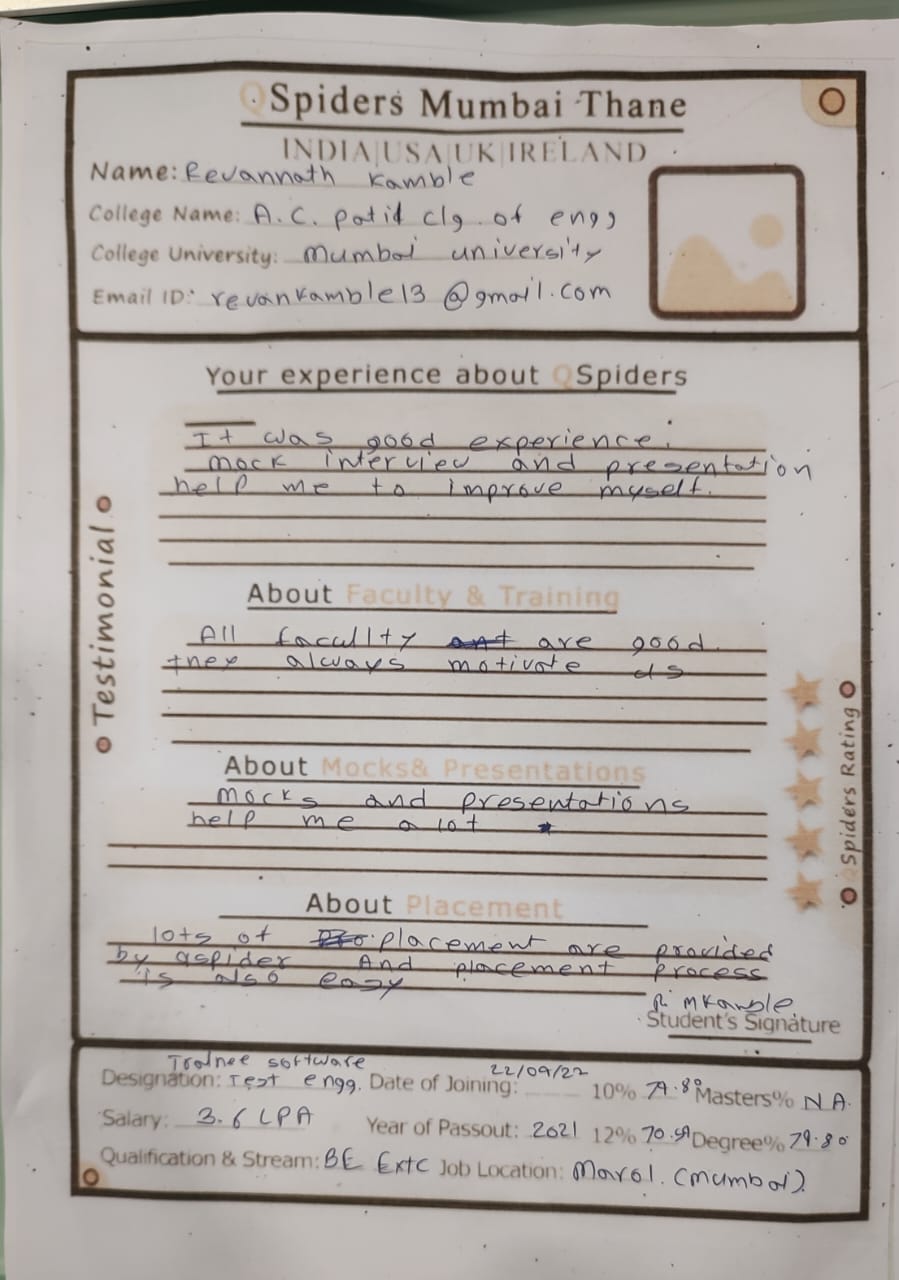 QSpiders Mumbai Thane
INDIA|USA|UK|IRELAND
Name: Revannath Kamble
College Name: A.C. patil clg. of engg
College University: mumbai university
Email ID: revankamble13@gmail.com
Your experience about QSpiders
It was good experience.
mock interview and presentation
help me to improve myself.
Testimonial
About Faculty & Training
All facullty are good.
they always motivate us
About Mocks& Presentations
mocks and presentations
help me a lot
QSpiders Rating
About Placement
lots of placement are provided
by qspider And placement process
is also easy
R. M Kamble
Student's Signature
Trainee software
Designation: Test engg. Date of Joining: 22/09/22 10% Masters% NA.
Salary: 3.6 LPA Year of Passout: 2021 12% Degree% 79.80
Qualification & Stream: BE Extc Job Location: Marol. (mumbai).